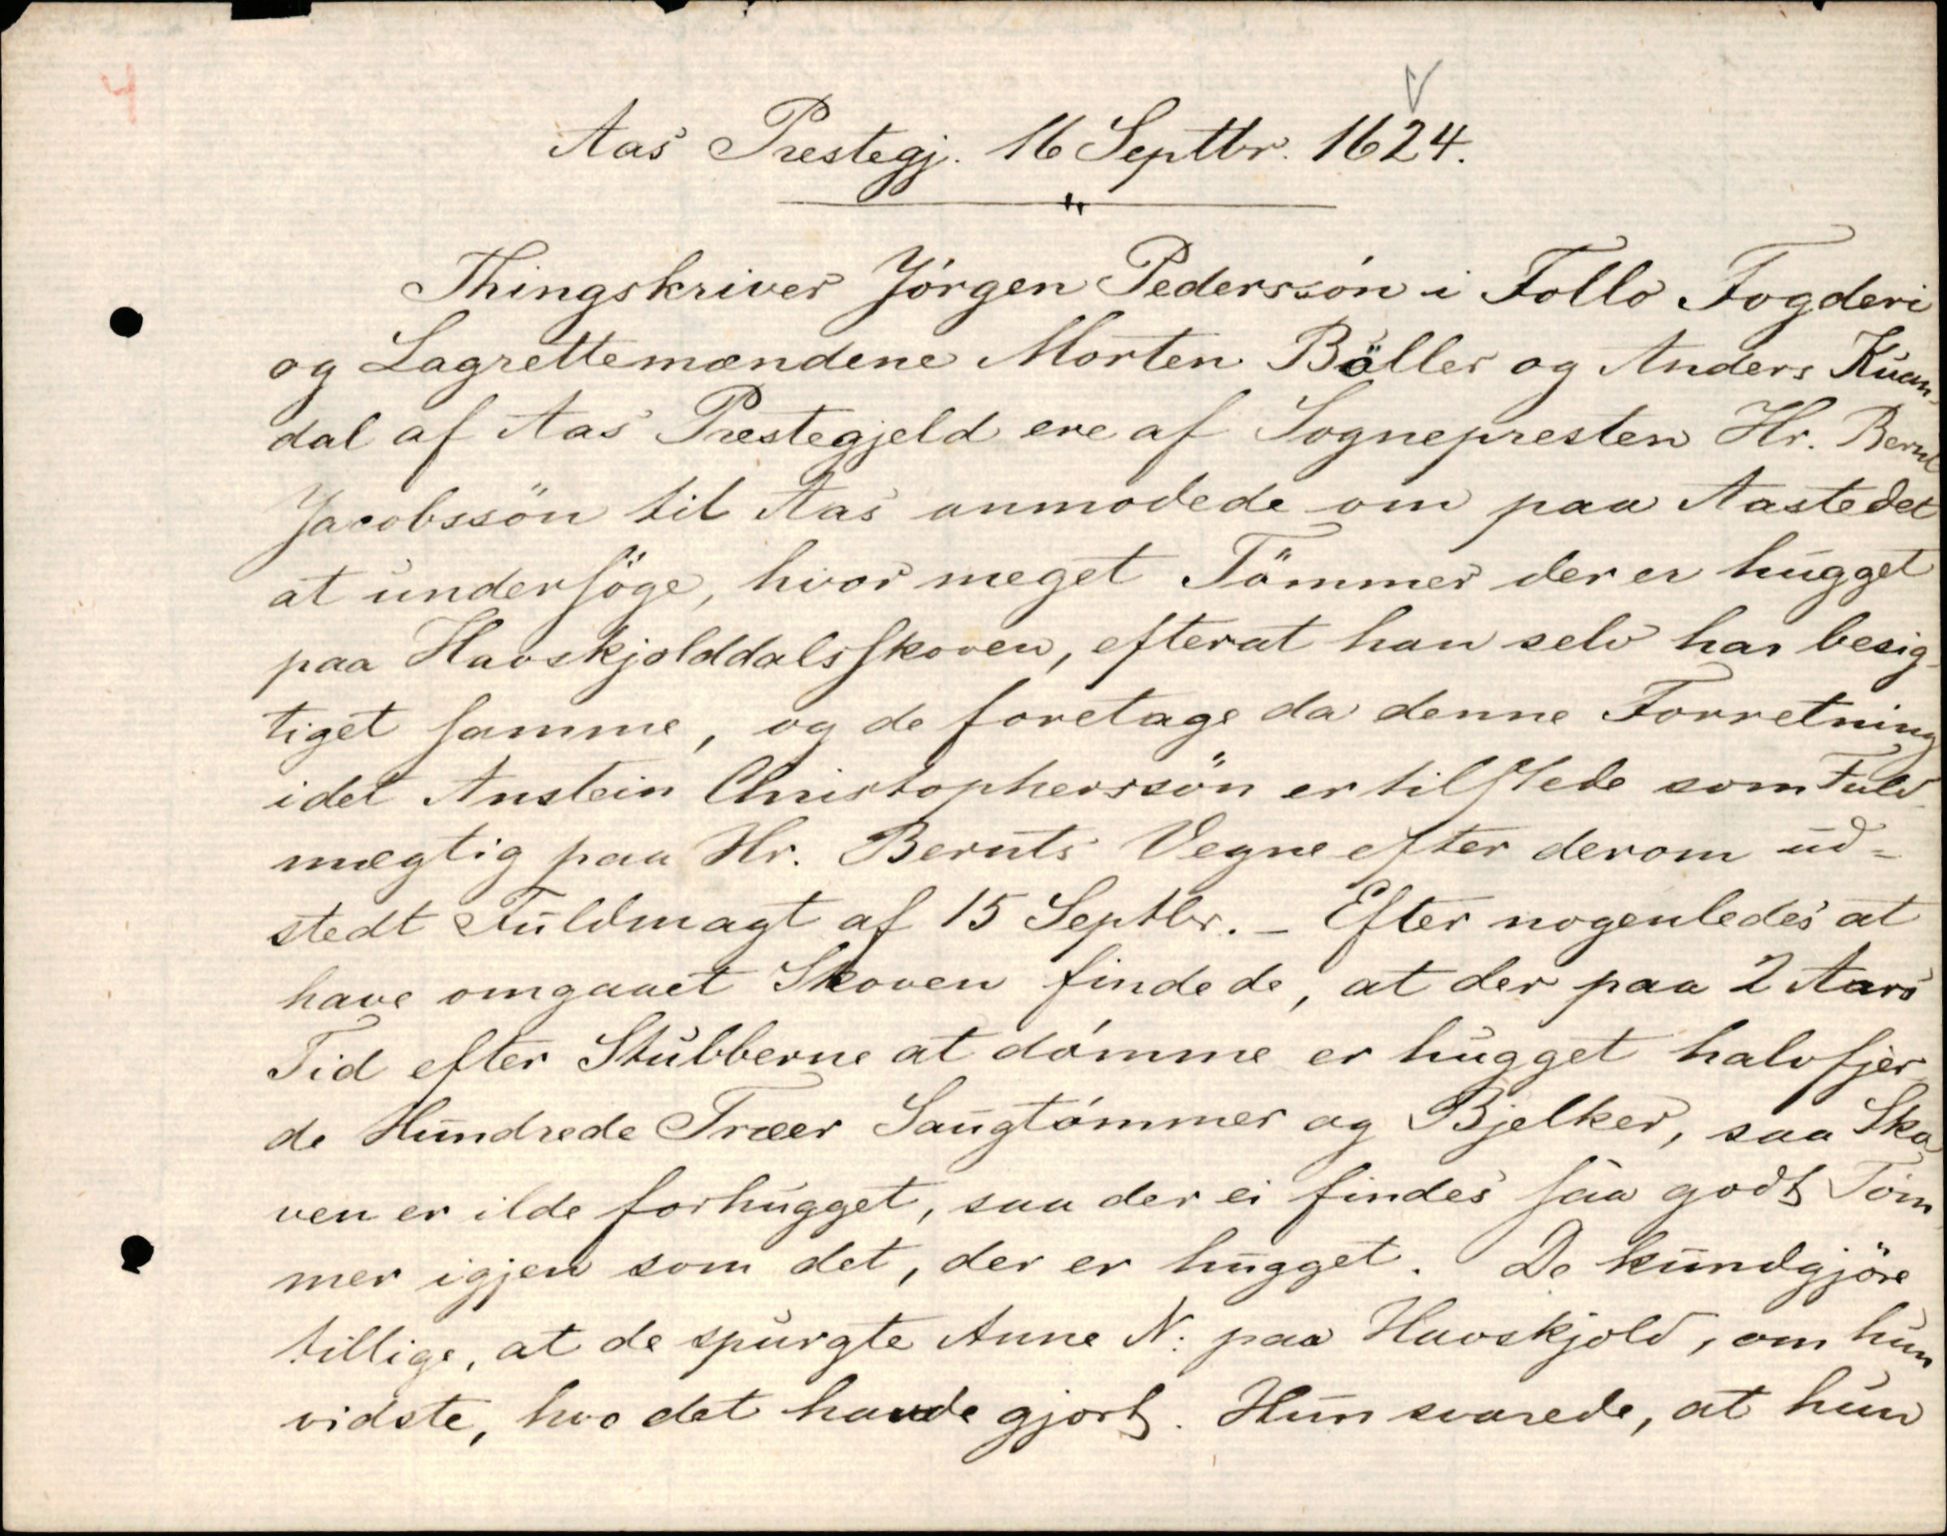 4
Aas Prestegj. 16 Septbr. 1624.
Thingskriver Jörgen Pederssön i Follo Fogderi
og Lagrettemændene Morten Böller og Anders Kuan-
dal af Aas Prestegjeld ere af Sognepresten Hr. Bernt
Jacobssön til Aas anmodede om paa Aastedet
at undersöge, hvor meget Tömmer der er hugget
paa Havskjolddalsskoven, efterat han selv har besig-
tiget samme, og de foretage da denne Forretning
idet Anstein Christopherssön er tilstede som Fuld-
mægtig paa Hr. Bernts Vegne efter derom ud-
stedt Fuldmagt af 15 Septbr. - Efter nogenledes at
have omgaaet Skoven finde de, at der paa 2 Aars
Tid efter Stubberne at dömme er hugget halvfjer-
de Hundrede Træer Saugtömmer og Bjelker, saa Sko-
ven er ilde forhugget, saa der ei findes saa godt Töm-
mer igjen som det, der er hugget. De kundgjöre
tillige, at de spurgte Anne N. paa Havskjold, om hun
vidste, hvo det havde gjort. Hun svarede, at hun